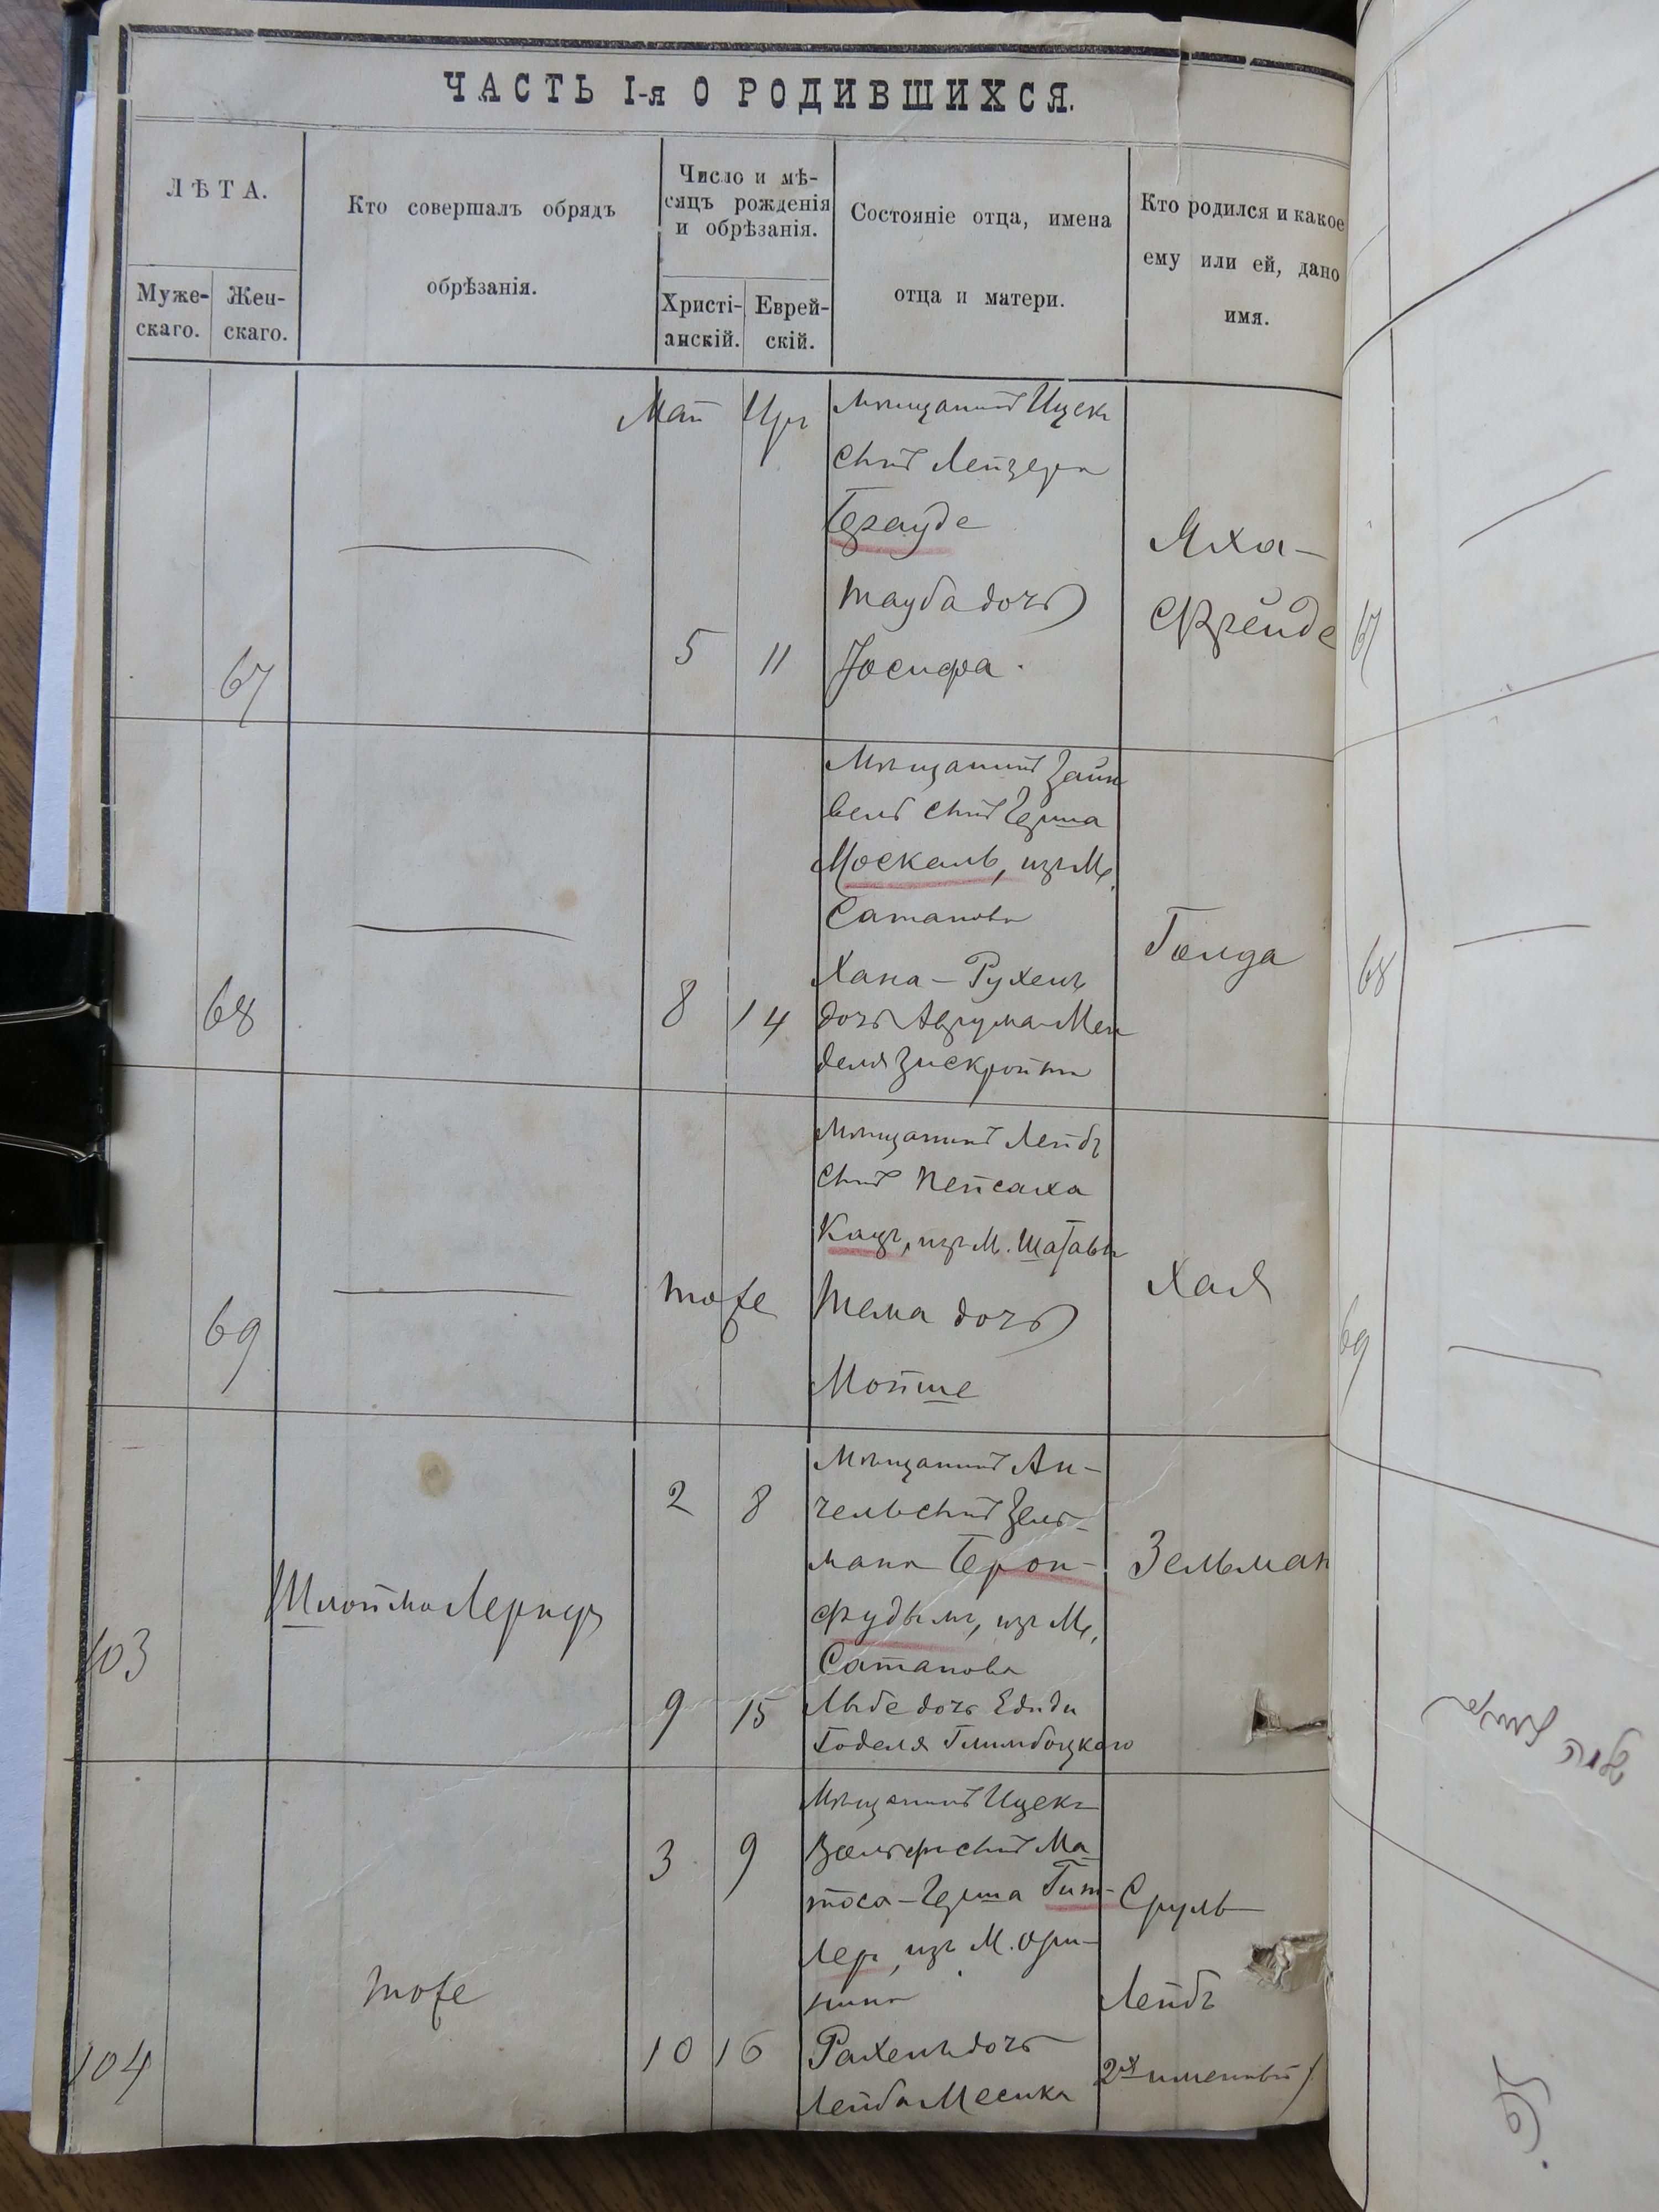 ЧАСТЬ I-я О РОДИВШИХСЯ.
ЛѢТА.
Муже-
скаго.
Жен-
скаго.
Кто совершалъ обрядъ
обрѣзанія.
Число и мѣ-
сяцъ рожденія
и обрѣзанія.
Христі-
анскій.
Еврей-
скій.
Состояніе отца, имена
отца и матери.
Кто родился и какое
ему или ей, дано
имя.
Май Іръ
67
5 11
Мѣщанинъ Ицекъ
сынъ Лейзера
Брауде
Тауба дочь
Іосифа
Яха-
Фрейде
67
68
8 14
Мѣщанинъ Зайн
вель сынъ Герша
Москаль, изъ М.
Сатанова
Хана-Рухель
дочь Аврума-Мен
деля
Голда
68
69
тоже
Мѣщанинъ Лейбъ
сынъ Пейсаха
Кацъ, изъ М. Шатавы
Тема дочь
Мойше
Хая
69
103
Шлойма Лернеръ
2 8
9 15
Мѣщанинъ Ан-
чель сынъ Зель-
мана
изъ М.
Сатанова
дочь
Годеля
Зельман
104
тоже
3 9
10 16
Мѣщанинъ Ицекъ
Вольфъ сынъ Ма-
тоса-Герша Гит-
леръ, изъ М. Ори-
нина
Рахель дочь
Лейба Месика
Сруль
Лейбъ
2хъ именный